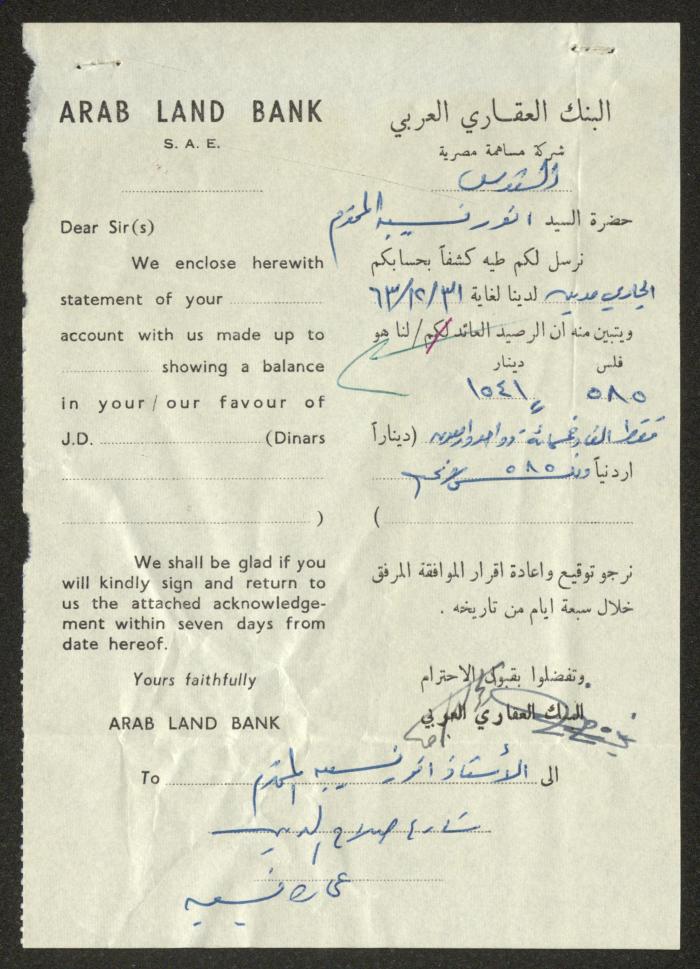 ARAB LAND BANK
S. A. E.
Dear Sir(s)
We enclose herewith
statement of your
account with us made up to
showing a balance
in your/our favour of
J.D. (Dinars
)
We shall be glad if you
will kindly sign and return to
us the attached acknowledge-
ment within seven days from
date hereof.
Yours faithfully
ARAB LAND BANK
البنك العقاري العربي
شركة مساهمة مصرية
القدس
حضرة السيد انور نسيبه المحترم
نرسل لكم طيه كشفاً بحسابكم
الجاري مدين لدينا لغاية ٦٣/١٢/٣١
ويتبين منه ان الرصيد العائد لكم/لنا هو
فلس دينار
٥٨٥ ١٥٤١
فقط الف وخمسمائة وواحد واربعون (ديناراً
اردنياً و ٥٨٥
(
نرجو توقيع واعادة اقرار الموافقة المرفق
خلال سبعة ايام من تاريخه .
وتفضلوا بقبول الاحترام
البنك العقاري العربي
To الى الأستاذ انور نسيبه المحترم
شارع صلاح الدين
عمارة نسيبه